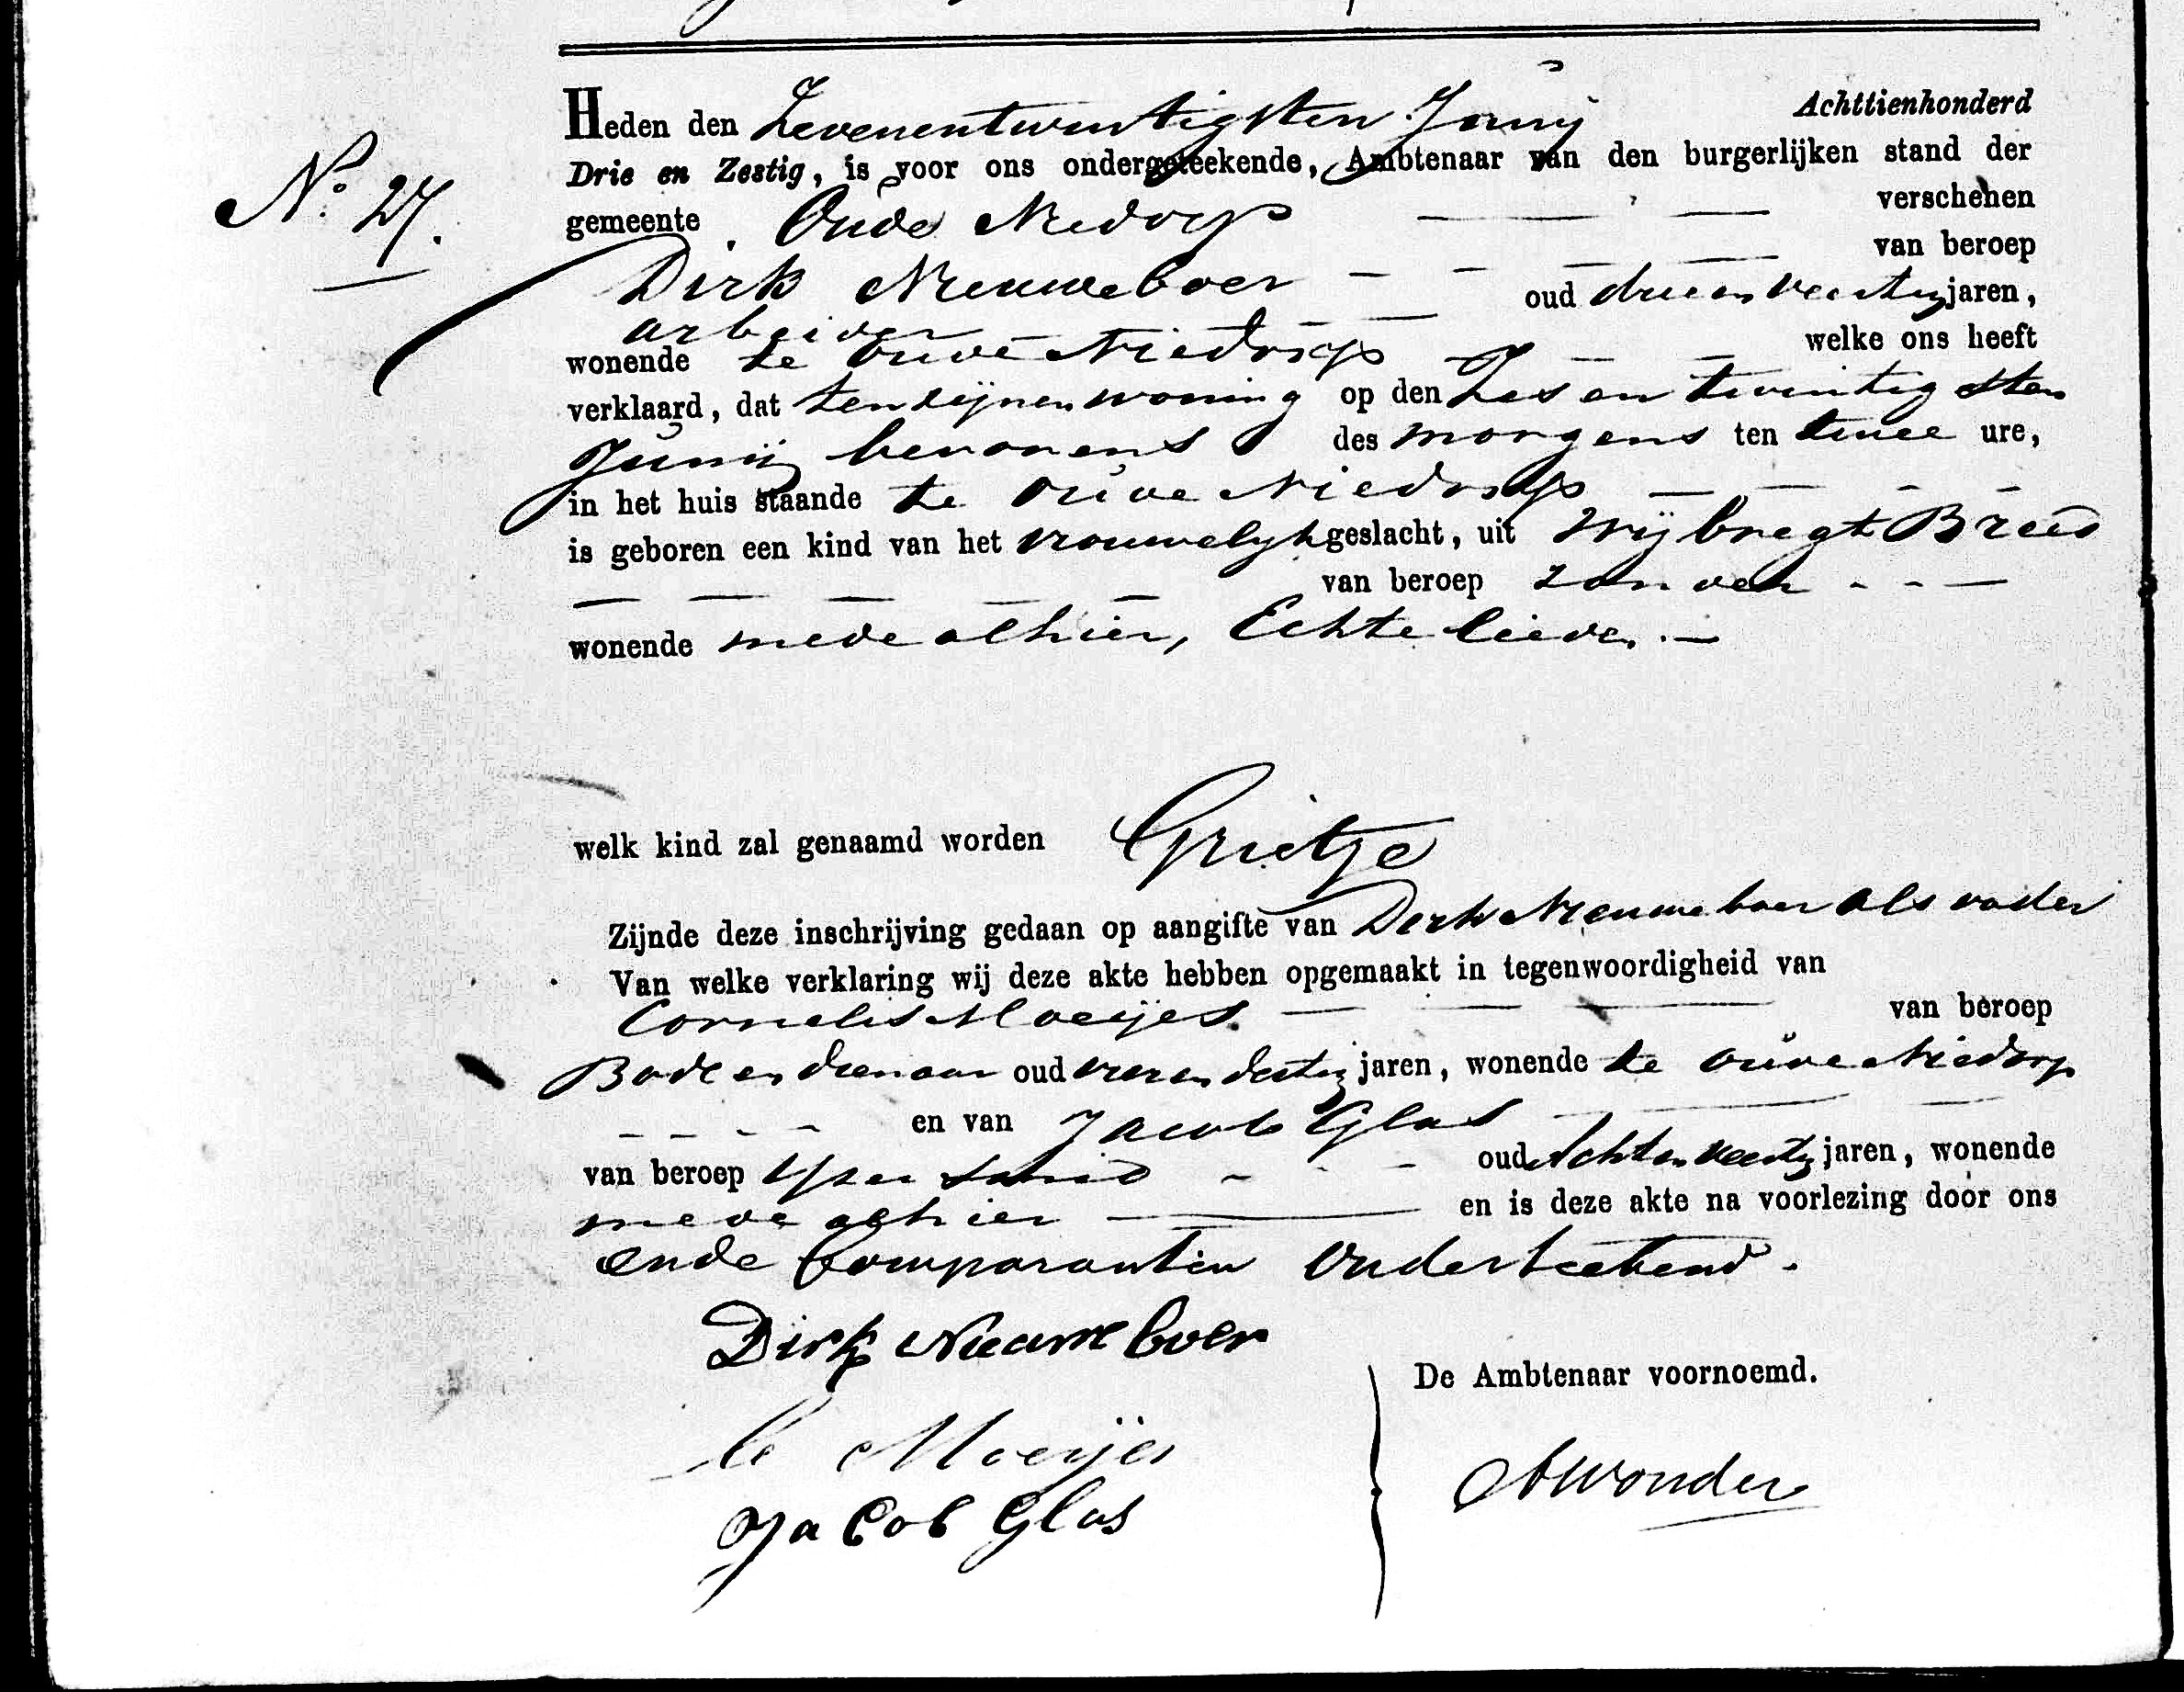 Heden den Zevenentwintigsten Junij Achttienhonderd
Drie en Zestig, is voor ons ondergeteekende, Ambtenaar van den burgerlijken stand der
No. 27.
gemeente Oude Niedorp verschenen
Dirk Nieuweboer van beroep
arbeider oud drie en veertig jaren,
wonende te Oude Niedorp welke ons heeft
verklaard, dat ten zijnen woning op den Zes en twintigsten
Junij bevorens des morgens ten twee ure,
in het huis staande te Oude Niedorp
is geboren een kind van het vrouwelijk geslacht, uit Wijbregt Breed
van beroep zonder
wonende mede alhier, Echtelieden.
welk kind zal genaamd worden Grietje
Zijnde deze inschrijving gedaan op aangifte van Dirk Nieuweboer als vader
Van welke verklaring wij deze akte hebben opgemaakt in tegenwoordigheid van
Cornelis Moeijes van beroep
Bode en dienaar oud vier en dertig jaren, wonende te Oude Niedorp
en van Jacob Glas
van beroep IJzersmid oud Acht en veertig jaren, wonende
mede alhier en is deze akte na voorlezing door ons
ende Comparanten onderteekend.
Dirk Nieuweboer
De Ambtenaar voornoemd.
C Moeijes
AWonder
Jacob Glas